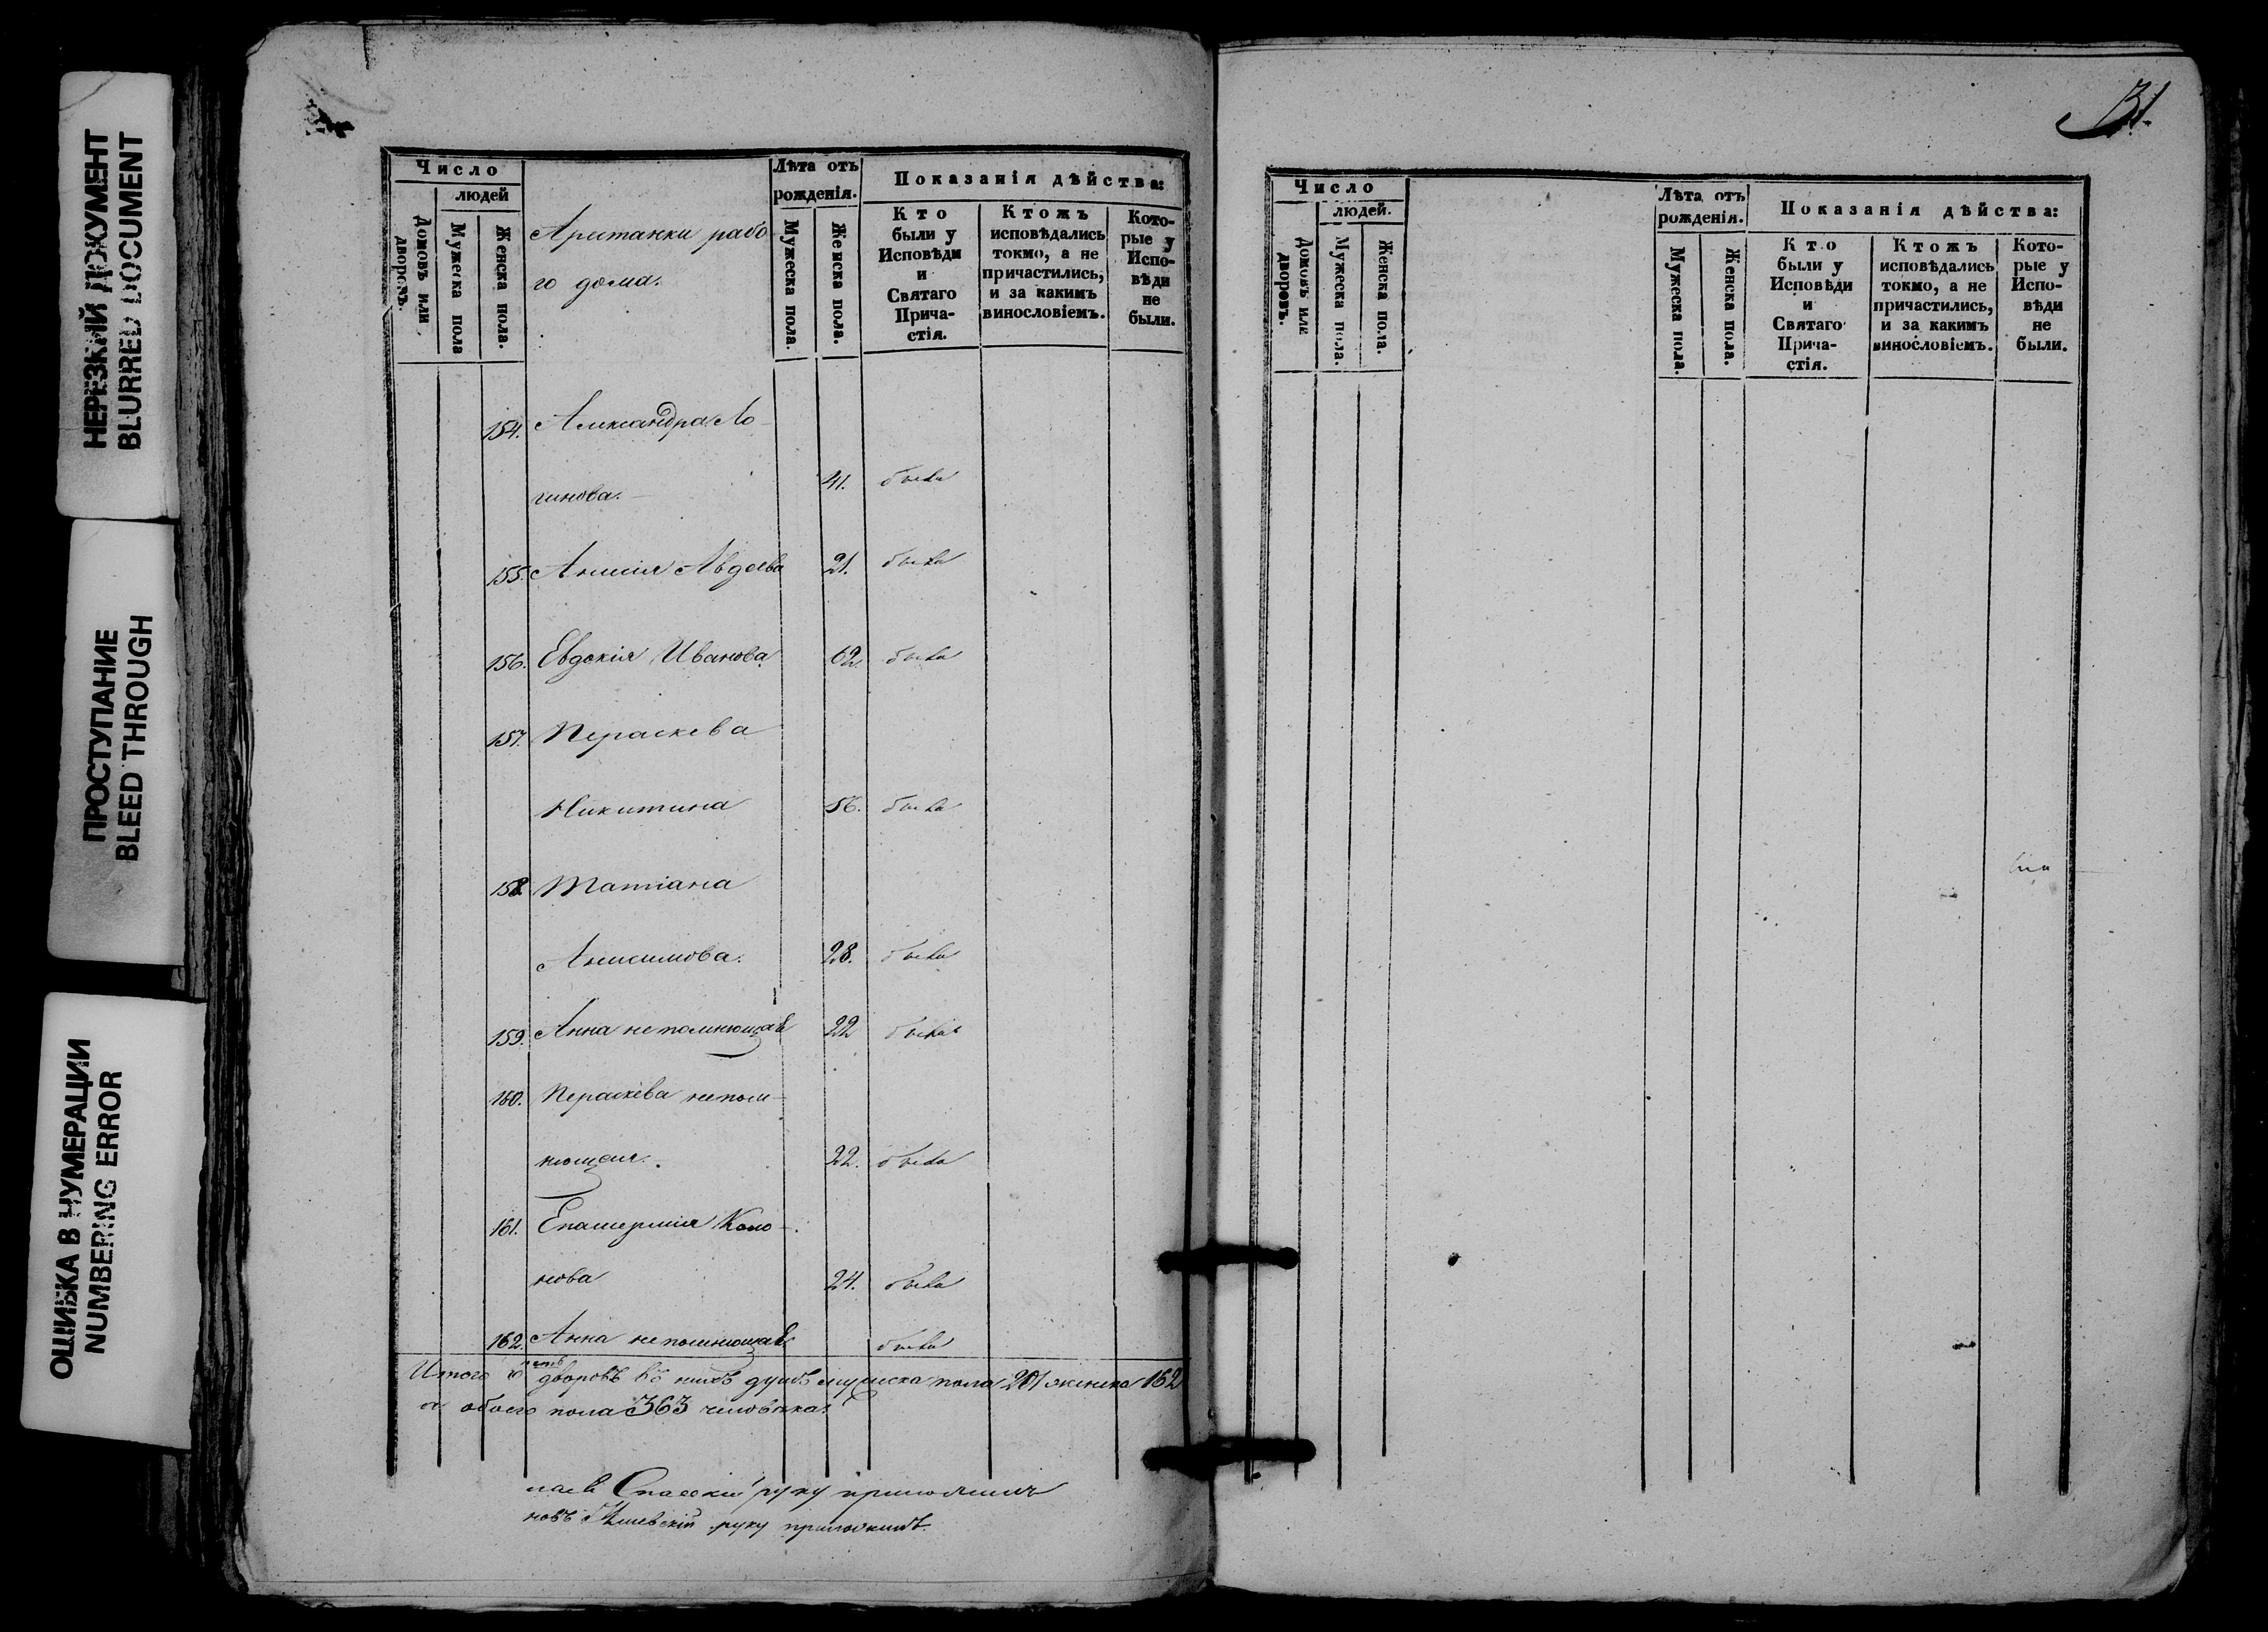 НЕРЕЗКИЙ ДОКУМЕНТ
BLURRED DOCUMENT
ПРОСТУПАНИЕ
BLEED THROUGH
ОШИБКА В НУМЕРАЦИИ
NUMBERING ERROR
Число
людей
Домовъ или дворовъ.
Мужеска пола
Женска пола.
Арестанки рабо
го дома.
Лѣта отъ рожденія.
Мужеска пола.
Женска пола.
Показанія дѣйства:
Кто были у Исповѣди и Святаго Прича-стія.
Ктожъ исповѣдались токмо, а не причастились, и за какимъ винословіемъ.
Кото-рые у Испо-вѣди не были.
154. Александра Ло-
гинова. 41. была
155. Анисія Авдѣева 21. была
156. Евдокія Иванова 62. была
157. Параскева
Никитина 56. была
158. Татіана
Анисимова. 28. была
159. Анна непомнющая 22 была
160. Параскева непом-
нющая. 22. была
161. Екатерина Коно-
нова 24. была
162. Анна непомнющая была
Итого дворовъ въ нихъ душъ мужеска пола 201 женска 162
а обоего пола 363 человѣка.
Спасскій руку приложилъ
руку приложилъ.
31.
Число
людей.
Домовъ или дворовъ.
Мужеска пола.
Женска пола.
Лѣта отъ рожденія.
Мужеска пола.
Женска пола.
Показанія дѣйства:
Кто были у Исповѣди и Святаго Прича-стія.
Ктожъ исповѣдались токмо, а не причастились, и за какимъ винословіемъ.
Кото-рые у Испо-вѣди не были.